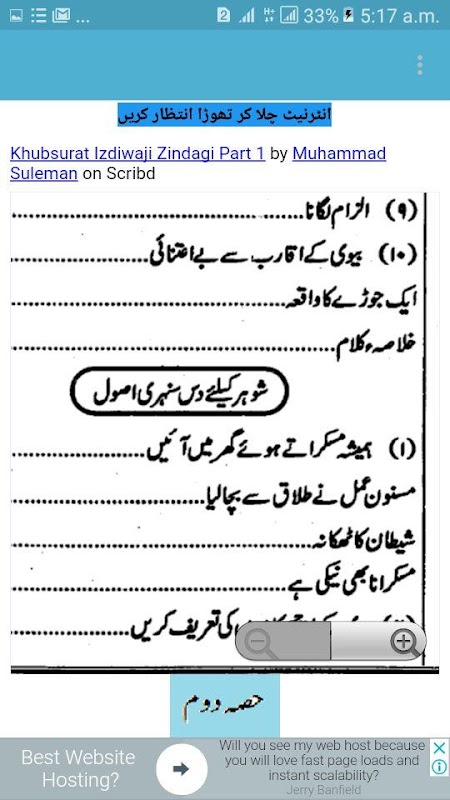 ... 2 H+ 33% 5:17 a.m.
انٹرنیٹ چلا کر تھوڑا انتظار کریں
Khubsurat Izdiwaji Zindagi Part 1 by Muhammad
Suleman on Scribd
(۹) الزام لگانا
(۱۰) بیوی کے اقارب سے بے اعتنائی
ایک جوڑے کا واقعہ
خلاصہء کلام
شوہر کیلئے دس سنہری اصول
(۱) ہمیشہ مسکراتے ہوئے گھر میں آئیں
مسنون عمل نے طلاق سے بچا لیا
شیطان کا ٹھکانہ
مسکرانا بھی نیکی ہے
کی تعریف کریں
حصہ دوم
Best Website
Hosting?
Will you see my web host because
you will love fast page loads and
instant scalability?
Jerry Banfield